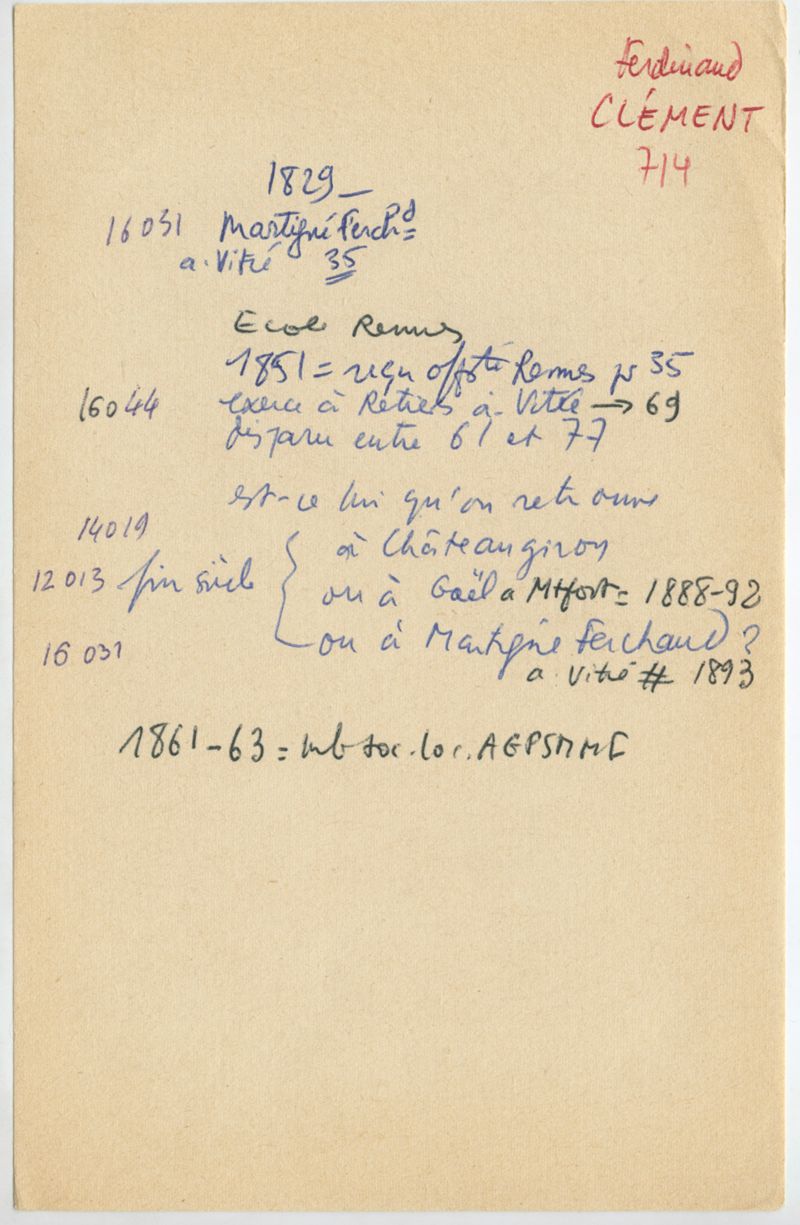 Ferdinand
CLÉMENT
714
1829_
16031 Martigné Ferchd
a. Vitré 35
Ecole Rennes
1851 = reçu offté Rennes pr 35
16044 exerce à Retiers a. Vitré → 69
disparu entre 61 et 77
est-ce lui qu'on retrouve
14019 à Châteaugiron
12013 fin siècle { ou à Gaël a Mtfort = 1888-92
16031 ou à Martigné Ferchaud ?
a. Vitré # 1893
1861-63 = mb soc. loc. AGPSMMF